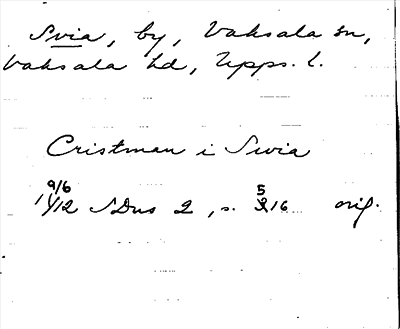 Svia, by, Vaksala sn,
Vaksala hd, Upps. l.
Cristman i Swia
19/6 1412 SDns 2, s. 516 orig.